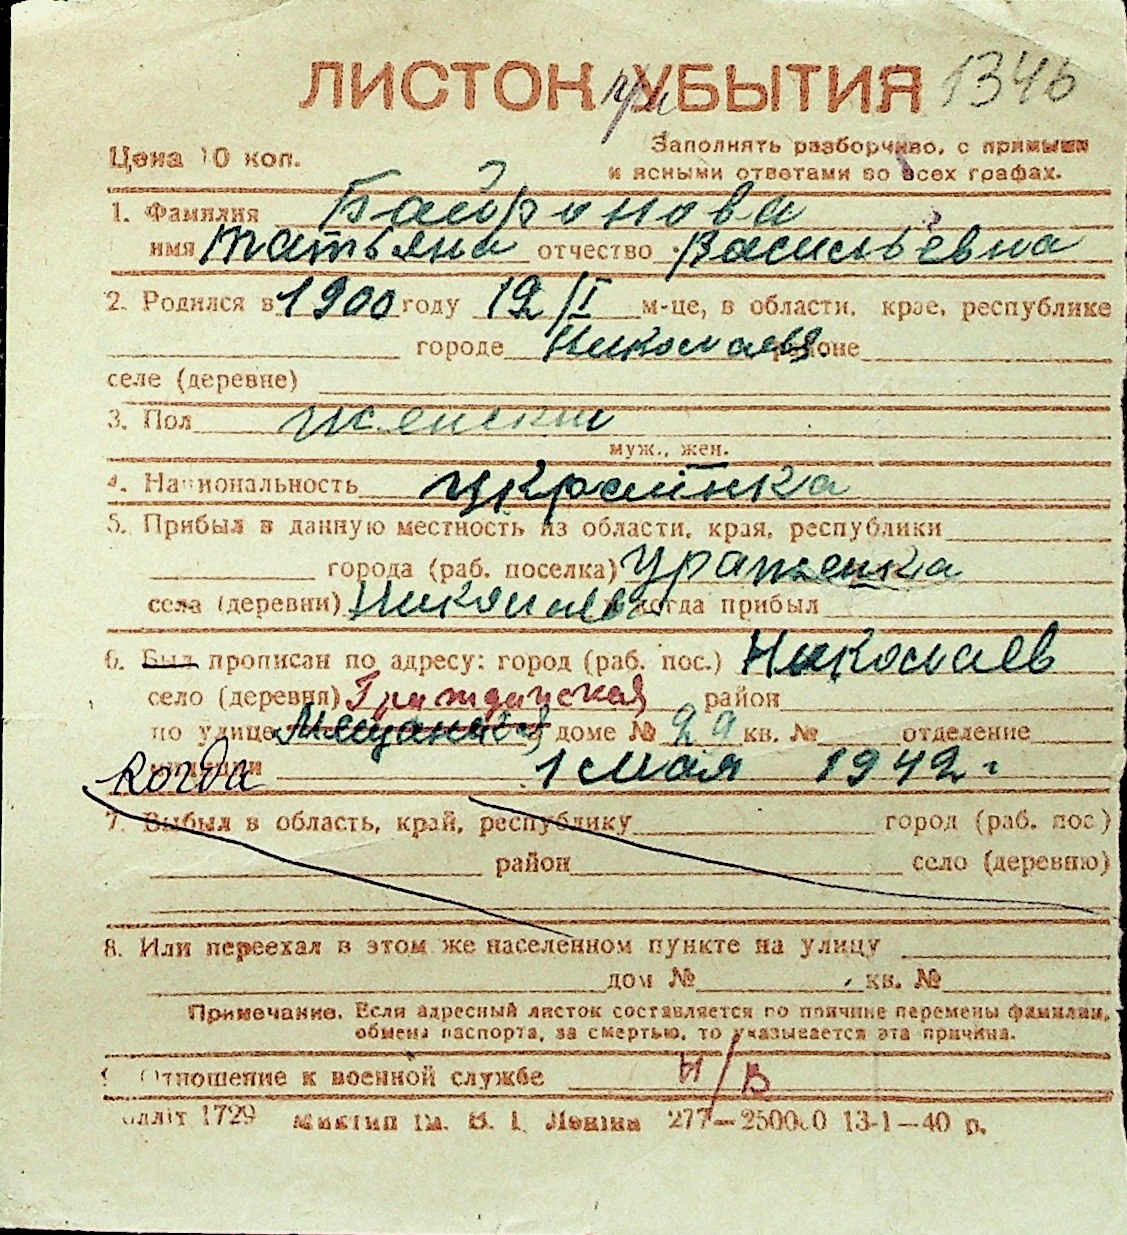 ЛИСТОК при УБЫТИЯ 1346
Цена 10 коп.
Заполнять разборчиво, с прямыми
и ясными ответами во всех графах.
1. Фамилия Байронова
имя Татьяна отчество Васильевна
2. Родился в 1900 году 19/I м-це, в области, крае, республике
городе Николаев районе
селе (деревне)
3. Пол женский
муж., жен.
4. Национальность украінка
5. Прибыл в данную местность из области, края, республики
города (раб. поселка) уроженка
села (деревни) Николаев когда прибыл
6. Был прописан по адресу: город (раб. пос.) Николаев
село (деревня) Гражданская район
по улице Мещанская доме № 29 кв. № отделение
милиции Когда 1 Мая 1942 г
7. Выбыл в область, край, республику город (раб. пос)
район село (деревню)
8. Или переехал в этом же населенном пункте на улицу
дом № кв. №
Примечание. Если адресный листок составляется по причине перемены фамилии,
обмена паспорта, за смертью, то указывается эта причина.
9 Отношение к военной службе н/в
1729 Миктип ім. В. І. Леніна 277—25000 13-1—40 р.